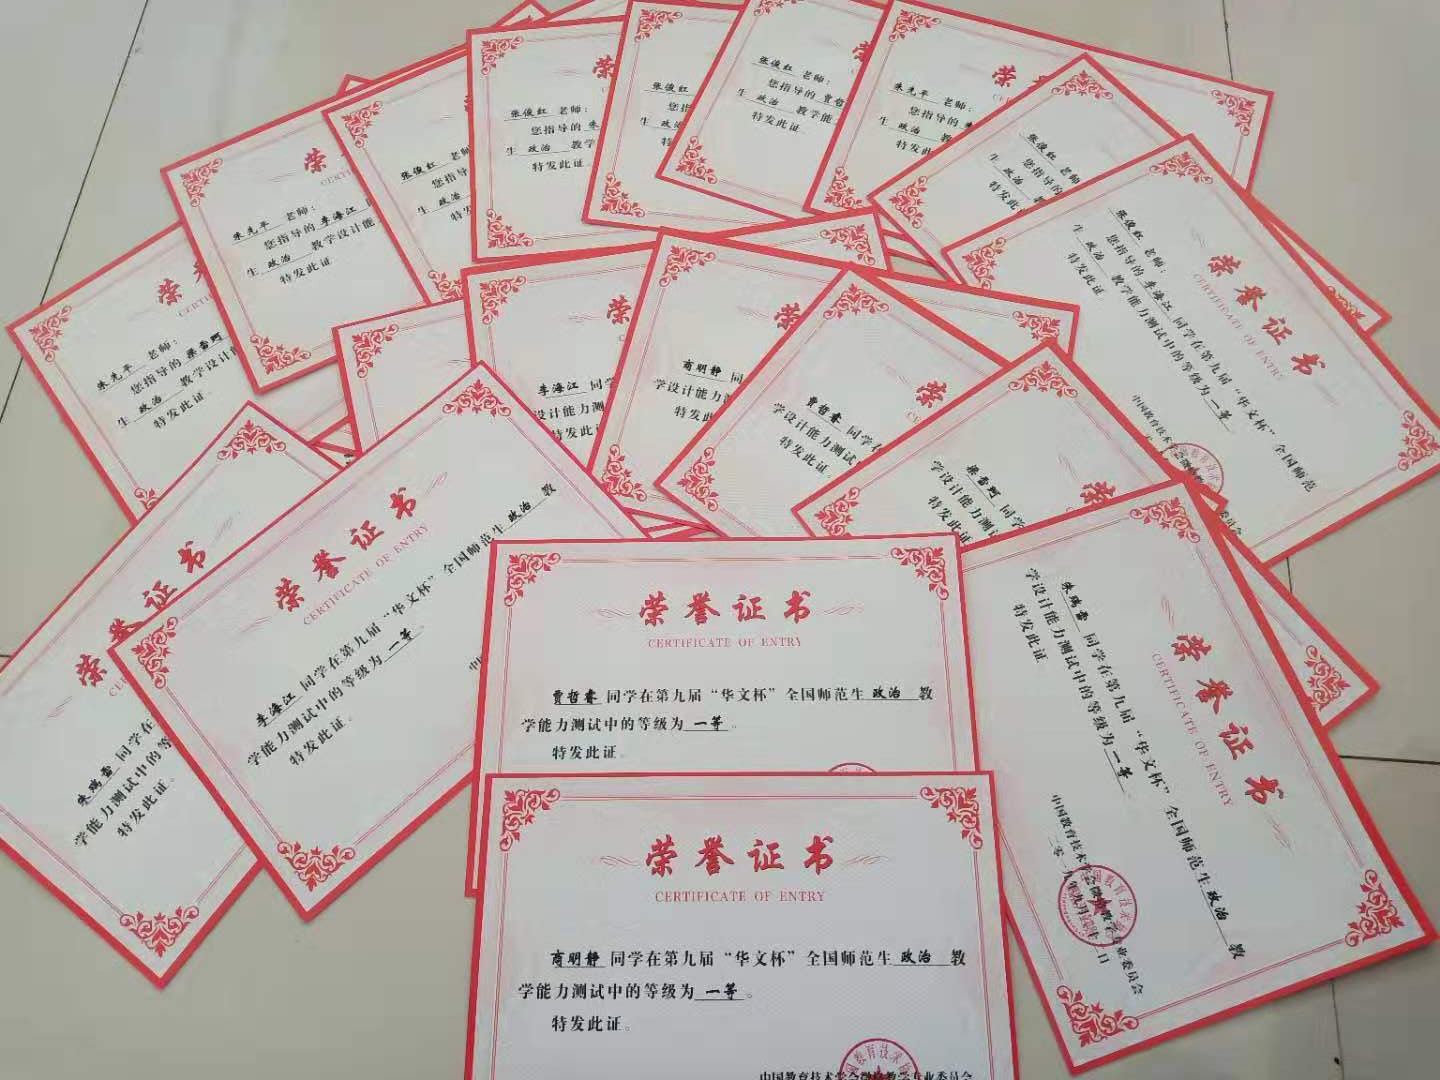 荣
朱先平 老师:
您指导的 梁岱珂
生 政治 教学设计
特发此证。
荣
朱先平 老师:
您指导的 李海江
生 政治 教学设计能
特发此证
张俊红 老师
您指导
生 政治
荣
张俊红 老师:
您指导的 朱
生 政治 教学
特发此证
张俊红
您指
生 政治
特
荣
张俊红 老师:
您指导的 贾哲
生 政治 教学能
特发此证
荣
朱先平 老师:
您指导的
生 政治 教
特发此
张俊红 老师
您指导的
生 政治
特发此
荣誉证书
CERTIFICATE OF ENTRY
张俊红 老师:
您指导的 李海江 同学在第九届“华文杯”全国师范
生 政治 教学能力测试中的等级为 一等
特发此证
荣
李海江 同学
设计能力测
特发此证
荣
商明静 同
学设计能力
特发此
荣
贾哲睿 同学在
学设计能力测试
特发此证
荣
同学
学设计能力测试
特发此证
荣誉证书
朱瑞雪 同学在
学能力测试中的等
特发此证。
荣誉证书
CERTIFICATE OF ENTRY
李海江 同学在第九届“华文杯”全国师范生 政治 教
学能力测试中的等级为 一等 。
特发此证。
荣誉证书
CERTIFICATE OF ENTRY
贾哲睿 同学在第九届“华文杯”全国师范生 政治 教
学能力测试中的等级为 一等 。
特发此证
荣誉证书
CERTIFICATE OF ENTRY
朱瑞雪 同学在第九届“华文杯”全国师范生 政治 教
学设计能力测试中的等级为 一等
特发此证
中国教育技术学会微格教学专业委员会
荣誉证书
CERTIFICATE OF ENTRY
商明静 同学在第九届“华文杯”全国师范生 政治 教
学能力测试中的等级为 一等 。
特发此证。
中国教育技术学会微格教学专业委员会